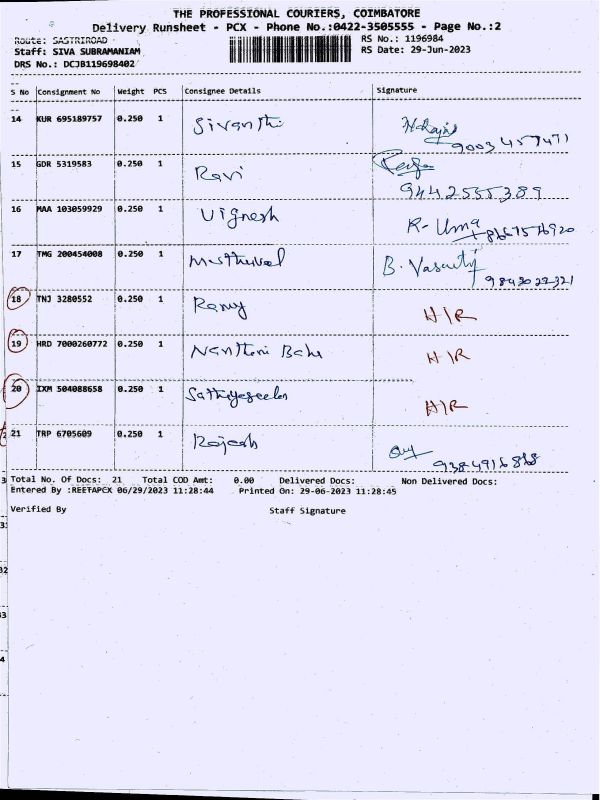 THE PROFESSIONAL COURIERS, COIMBATORE
Delivery Runsheet - PCX - Phone No.:0422-3505555 - Page No.:2
Route: SASTRIROAD
RS No.: 1196984
Staff: SIVA SUBRAMANIAM
RS Date: 29-Jun-2023
DRS No.: DCJB119698402
S No Consignment No Weight PCS Consignee Details Signature
14 KUR 695189757 0.250 1 Sivanthi
9003457471
15 GDR 5319583 0.250 1 Ravi
9442535389
16 MAA 103059929 0.250 1 Vignesh R. Uma
17 TMG 200454008 0.250 1 Muthuvel B. Vasanthi
9843022321
18 TNJ 3280552 0.250 1 Ramy H/R
19 HRD 7000260772 0.250 1 Nanthini H/R
20 IXM 504088658 0.250 1 H/R
21 TRP 6705609 0.250 1 Rajesh
9384916868
Total No. Of Docs: 21 Total COD Amt: 0.00 Delivered Docs: Non Delivered Docs:
Entered By :REETAPCX 06/29/2023 11:28:44 Printed On: 29-06-2023 11:28:45
Verified By Staff Signature